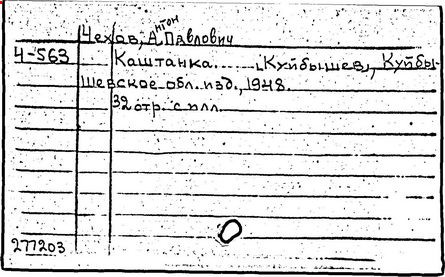 Чехов, Антон Павлович
Ч-563 Каштанка. [Куйбышев], Куйбы-
шевское обл. изд., 1948.
32 стр. с илл.
277203